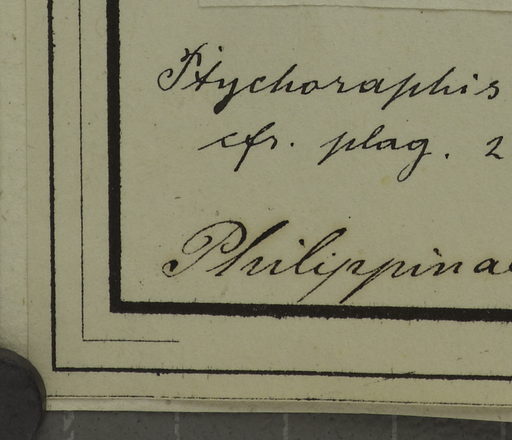 Ptychoraphis
cfr. plag. 2
Philippinae